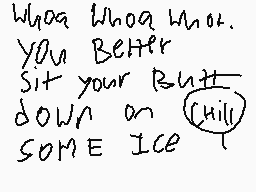 Whoa Whoa Whoa.
you Better
Sit your Butt
down on Chill
SOME ICE